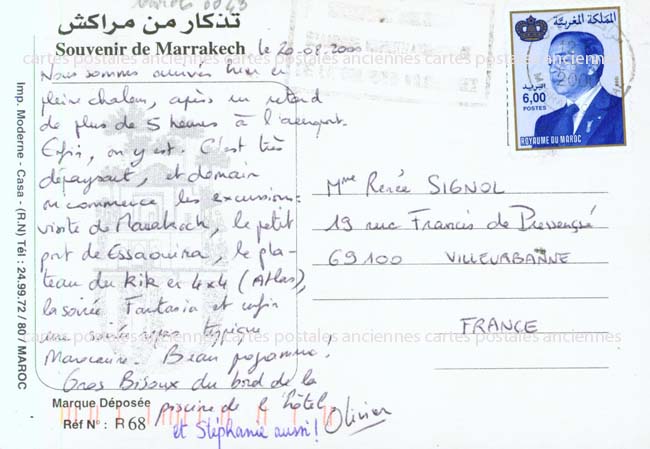 تذكار من مراكش
Souvenir de Marrakech
le 20.08.2000
Nous sommes arrivés hier en
pleine chaleur, après un retard
de plus de 5 heures à l'aéroport.
Enfin, on y est. C'est très
dépaysant, et demain
on commence les excursions :
visite de Marrakech, le petit
port de Essaouira, le pla-
teau du Kik en 4x4 (Atlas),
la soirée Fantasia et enfin
une soirée repas typique
Marocaine. Beau programme!
Gros Bisous du bord de la
piscine de l'hôtel
Olivier
et Stéphanie aussi!
Marque Déposée
Réf N° : R 68
Imp. Moderne - Casa - (R.N) Tél : 24.99.72 / 80 / MAROC
المملكة المغربية
البريد
6,00
POSTES
ROYAUME DU MAROC
Mme Renée SIGNOL
19 rue Francis de Pressensé
69100 VILLEURBANNE
FRANCE
cartes postales anciennes cartes postales anciennes cartes postales anciennes
cartes postales anciennes cartes postales anciennes cartes postales anciennes